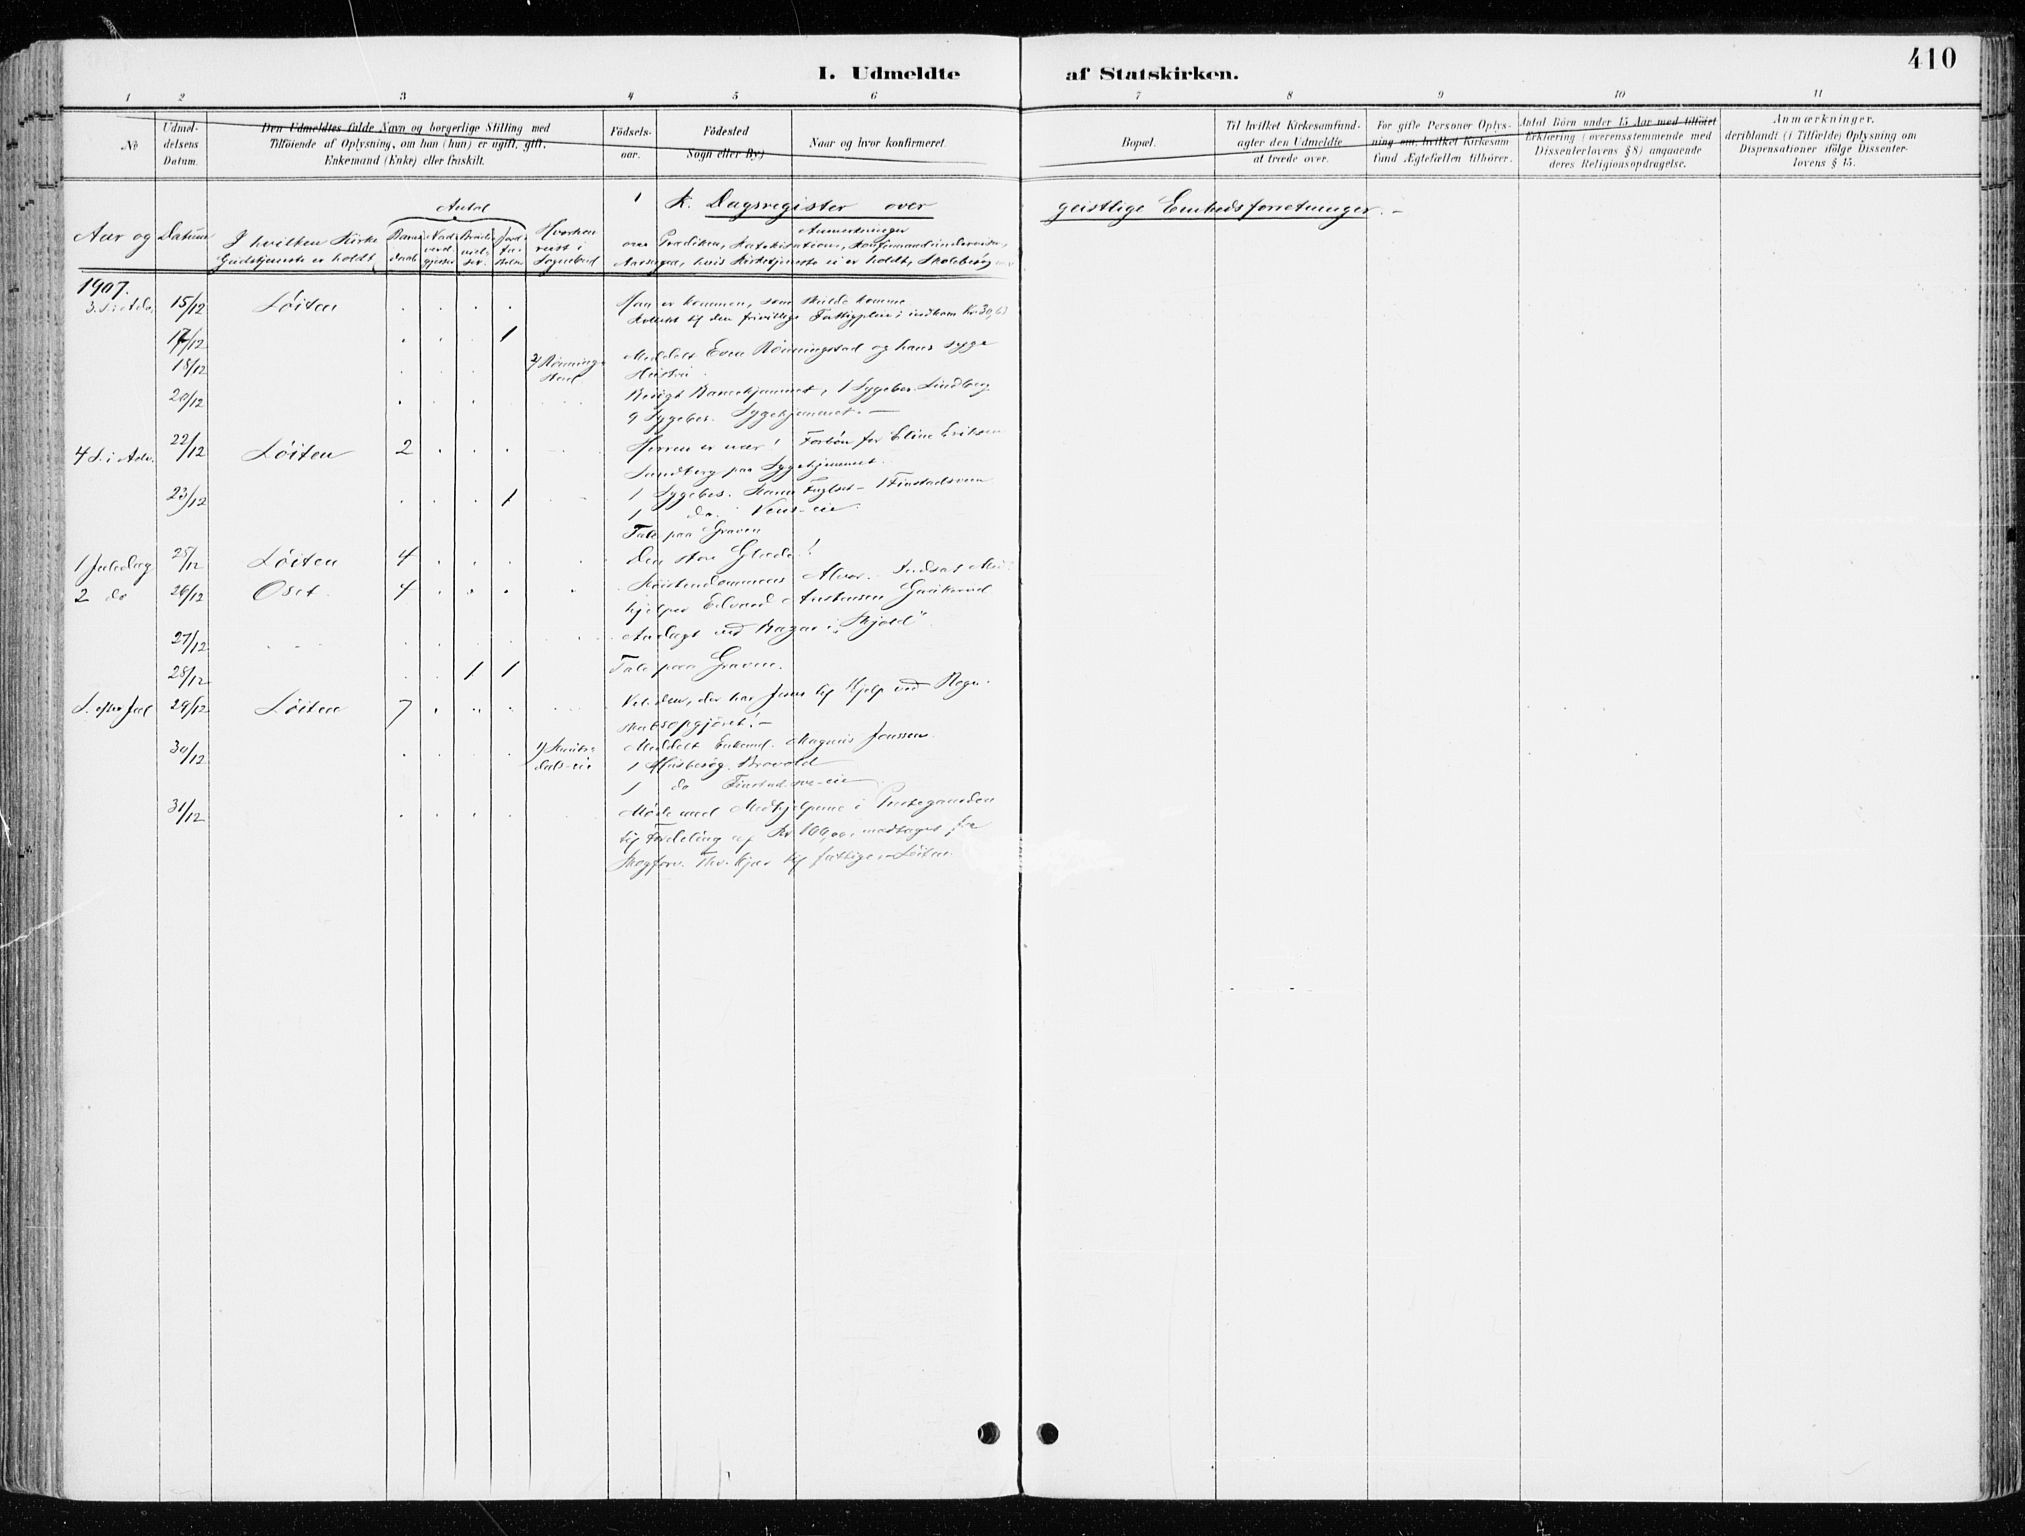 410
I. Udmeldte af Statskirken.
1 2 3 4 5 6 7 8 9 10 11
No
Udmel-
delsens
Datum.
Den Udmeldtes fulde Navn og borgerlige Stilling med
Tilføiende af Oplysning, om han (hun) er ugift, gift,
Enkemand (Enke) eller fraskilt.
Fødsels-
aar.
Fødested
Sogn eller By)
Naar og hvor konfirmeret
Bopæl.
Til hvilket Kirkesamfund-
agter den Udmeldte
at træde over.
For gifte Personer Oplys-
ning om, hvilket Kirkesam
fund Ægtefællen tilhører.
Antal Børn under 15 Aar med tilføiet
Erklæring (overensstemmende med
Dissenterlovens § 8) angaaende
deres Religionsopdragelse.
Anmærkninger,
deriblandt (i Tilfælde) Oplysning om
Dispensationer ifølge Dissenter-
lovens § 15.
K. Dagsregister over geistlige Embedsforretninger. –
Aar og Datum
I hvilken Kirke
Gudstjeneste er holdt
Antal
Barne
daab
Nad
verd
gjester
Brude
viel-
ser
Jord
fæ-
stelser
Hvorhen
reist i
Sognebud
Anmerkninger
over Prædiken, Katekisation, Konfirmandundervisn,
Aarsagen, hvis Kirketjeneste ei er holdt, Skolebesøg
1907.
3. S. i Adv. 15/12 Löiten . . . . Han er kommen, som skulde komme
Kollekt til den frivillige Fattigpleie; indkom Kr 30,63
17/12 . . . 1
18/12 . . . 2/ Rönning-
stad Meddelt Even Rönningstad og hans syge
Hustru.
20/12 . . . Besögt Barnehjemmet, 1 Sygebes. Lindberg
9 Sygebes. Sygehjemmet. –
4 S. i Adv. 22/12 Löiten 2 . . . Herren er nær! Forbön for Eline Eriksen
Sandberg paa Sygehjemmet.
23/12 . . . 1 1 Sygebes. Fuglset – 1 Finstadsveen
1 do.
Tale paa Graven
1 Juledag 25/12 Löiten 4 . . . Den store Glæde!
2 do 26/12 Oset. 4 . . . Kristendommens Alvor. Indsat Med-
hjelper Edvard Gaukerud
27/12 . . . Andagt ved Bazar i „Skjold"
28/12 . . 1 1 Tale paa Graven.
S. efter Jul 29/12 Löiten 7 . . . Vel den, der har Jesus til Hjelp ved Regn-
skabsopgjöret! –
30/12 . . . . 1/
dals-eie Meddelt Enkemd. Magnus Jonssen.
1 Husbesög
1 do
31/12 . . . . Möde med Medhjelperne i Prestegaarden
til Fordeling af Kr 100,00, modtaget fra
Skogforv. Kjær til fattige i Löiten.